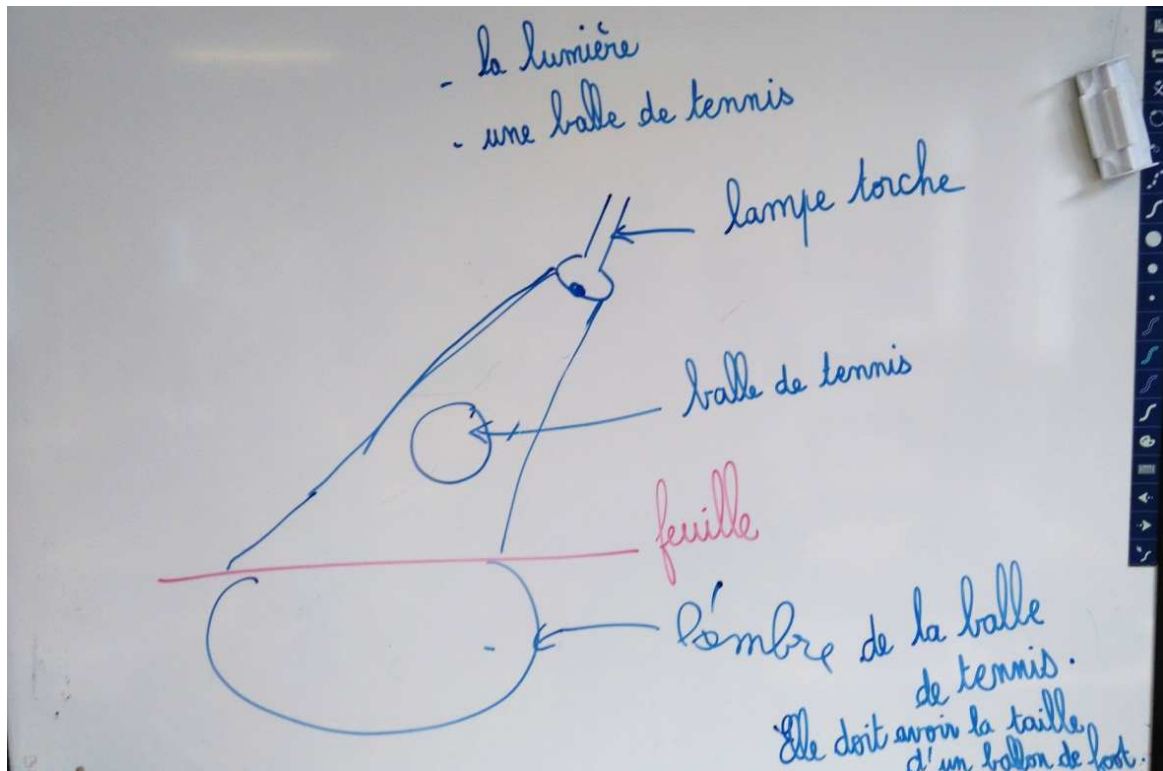 - la lumière
- une balle de tennis
lampe torche
balle de tennis
feuille
L'ombre de la balle
de tennis.
Elle doit avoir la taille
d'un ballon de foot.